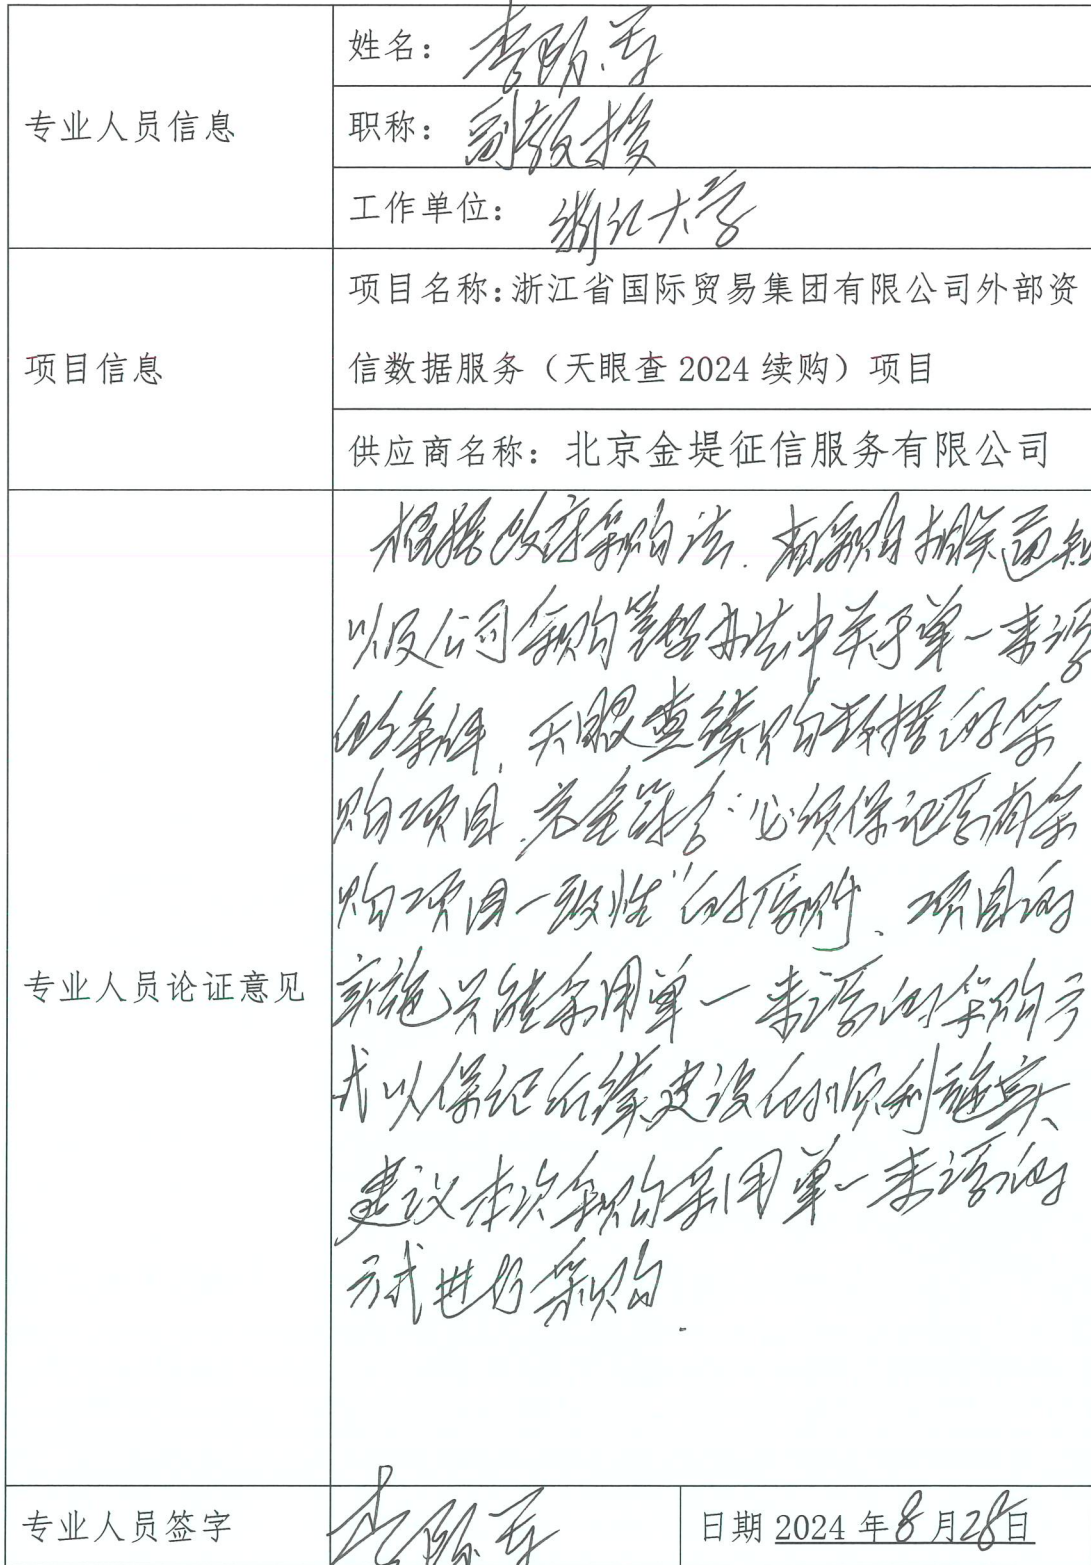 专业人员信息
姓名：李
职称：副教授
工作单位：浙江大学
项目信息
项目名称:浙江省国际贸易集团有限公司外部资
信数据服务（天眼查 2024 续购）项目
供应商名称：北京金堤征信服务有限公司
专业人员论证意见
根据政府采购法、有采购相关通知
以及公司采购管理办法中关于单一来源
的条件，天眼查续购数据的采
购项目，完全符合“必须保证原有采
购项目一致性”的原则、项目的
实施只能采用单一来源的采购方
式以保证后续建设的顺利施实
建议本次采购采用单一来源的
方式进行采购.
专业人员签字
李
日期 2024 年 8 月 28日